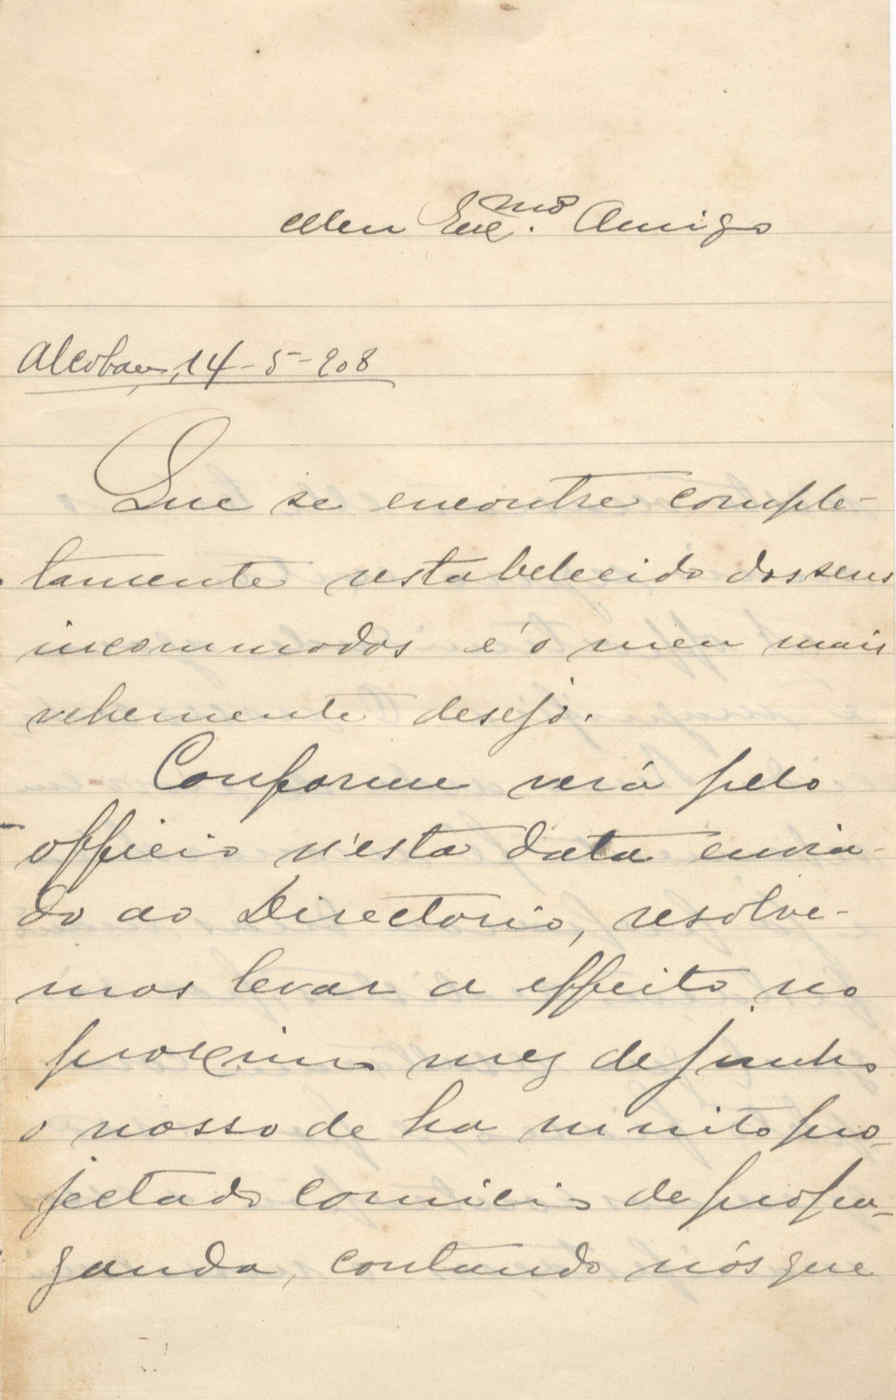 Meu Exc.mo Amigo
Alcobaça, 14-5-908
Que se encontre comple-
tamente restabelecido dos seus
incommodos é o meu mais
vehemente desejo.
Conforme verá pelo
officio n'esta data envia-
do ao Directorio, resolve-
mos levar a effeito no
proximo mez de junho
o nosso de ha muito pro-
jectado comicio de propa-
ganda, contando nós que